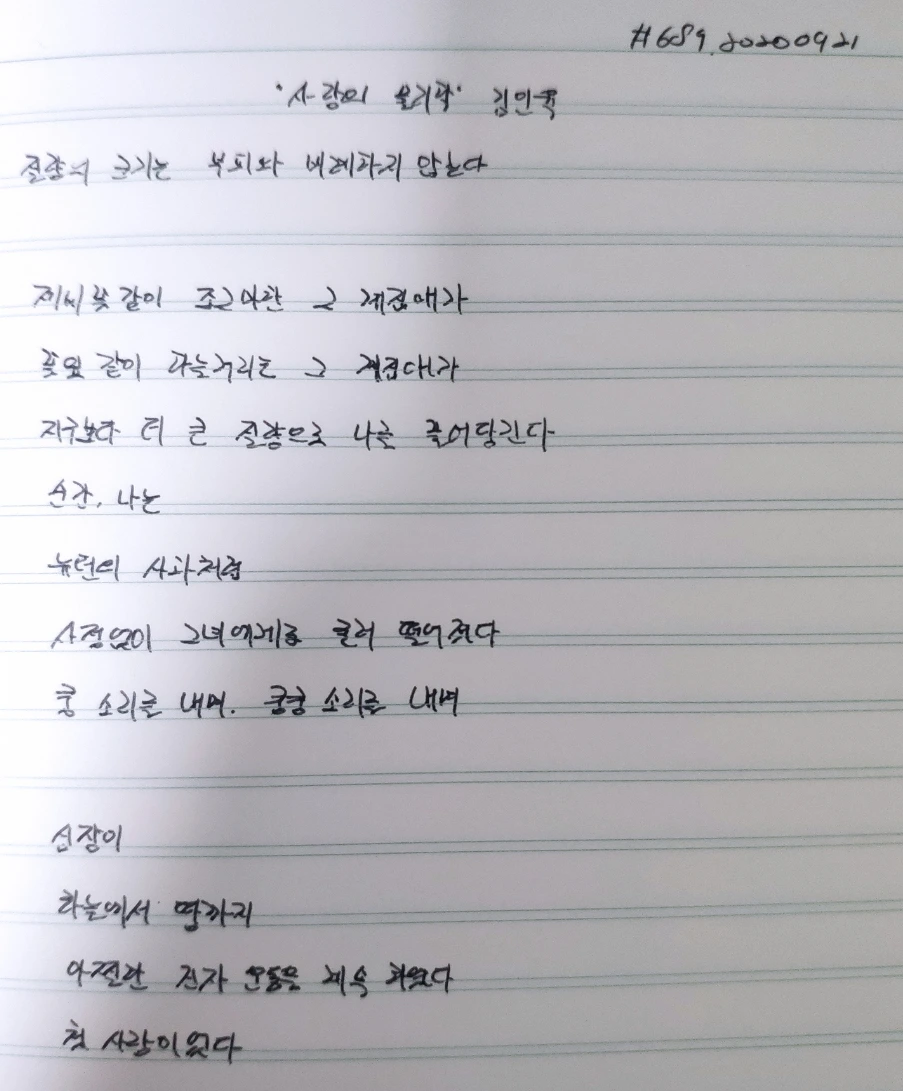 #689. 20200921
'사랑의 물리학' 김인육
질량의 크기는 부피와 비례하지 않는다
제비꽃 같이 조그마한 그 계집애가
꽃잎 같이 하늘거리는 그 계집애가
지구보다 더 큰 질량으로 나를 끌어당긴다
순간, 나는
뉴턴의 사과처럼
사정없이 그녀에게로 굴러 떨어졌다
쿵 소리를 내며. 쿵쿵 소리를 내며
심장이
하늘에서 땅까지
아찔한 진자 운동을 계속 하였다
첫 사랑이었다